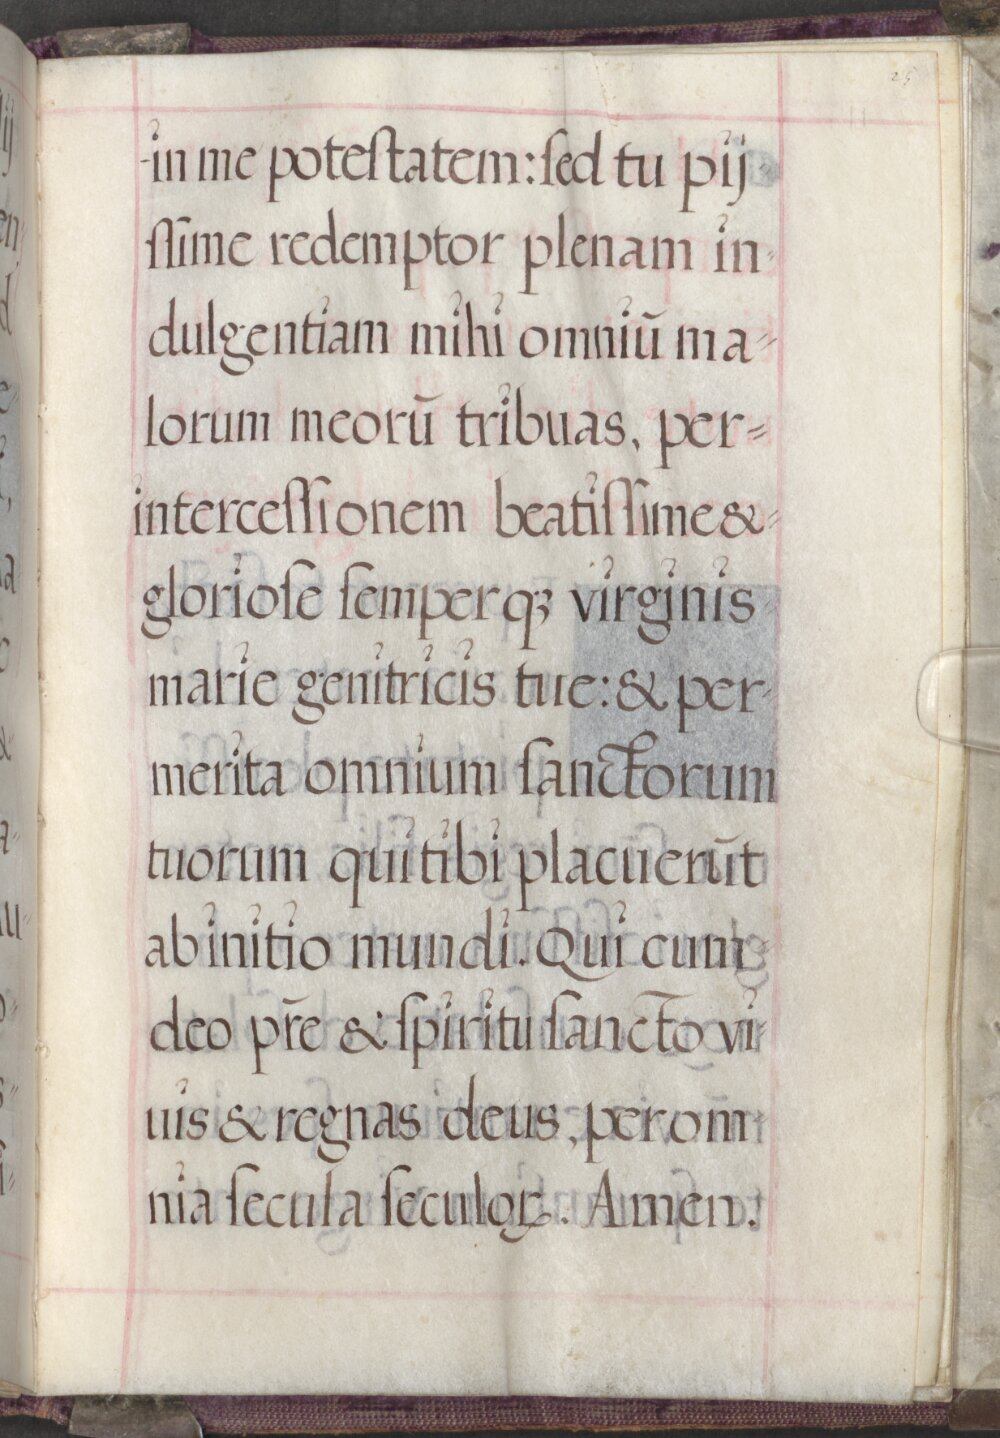 25
in me poteſtatem: ſed tu pij
ſſime redemptor plenam in-
dulgentiam mihi omniū ma-
lorum meorū tribuas, per-
interceſſionem beatiſſime &
glorioſe ſemperqꝫ virginis
marie genitricis tue: & per-
merita omnium ſanctorum
tuorum qui tibi placuerūt
ab initio mundi. Qui cum
deo pr̄e & ſpiritu ſancto vi-
uis & regnas deus, per om-
nia ſecula ſeculoꝝ. Amen.